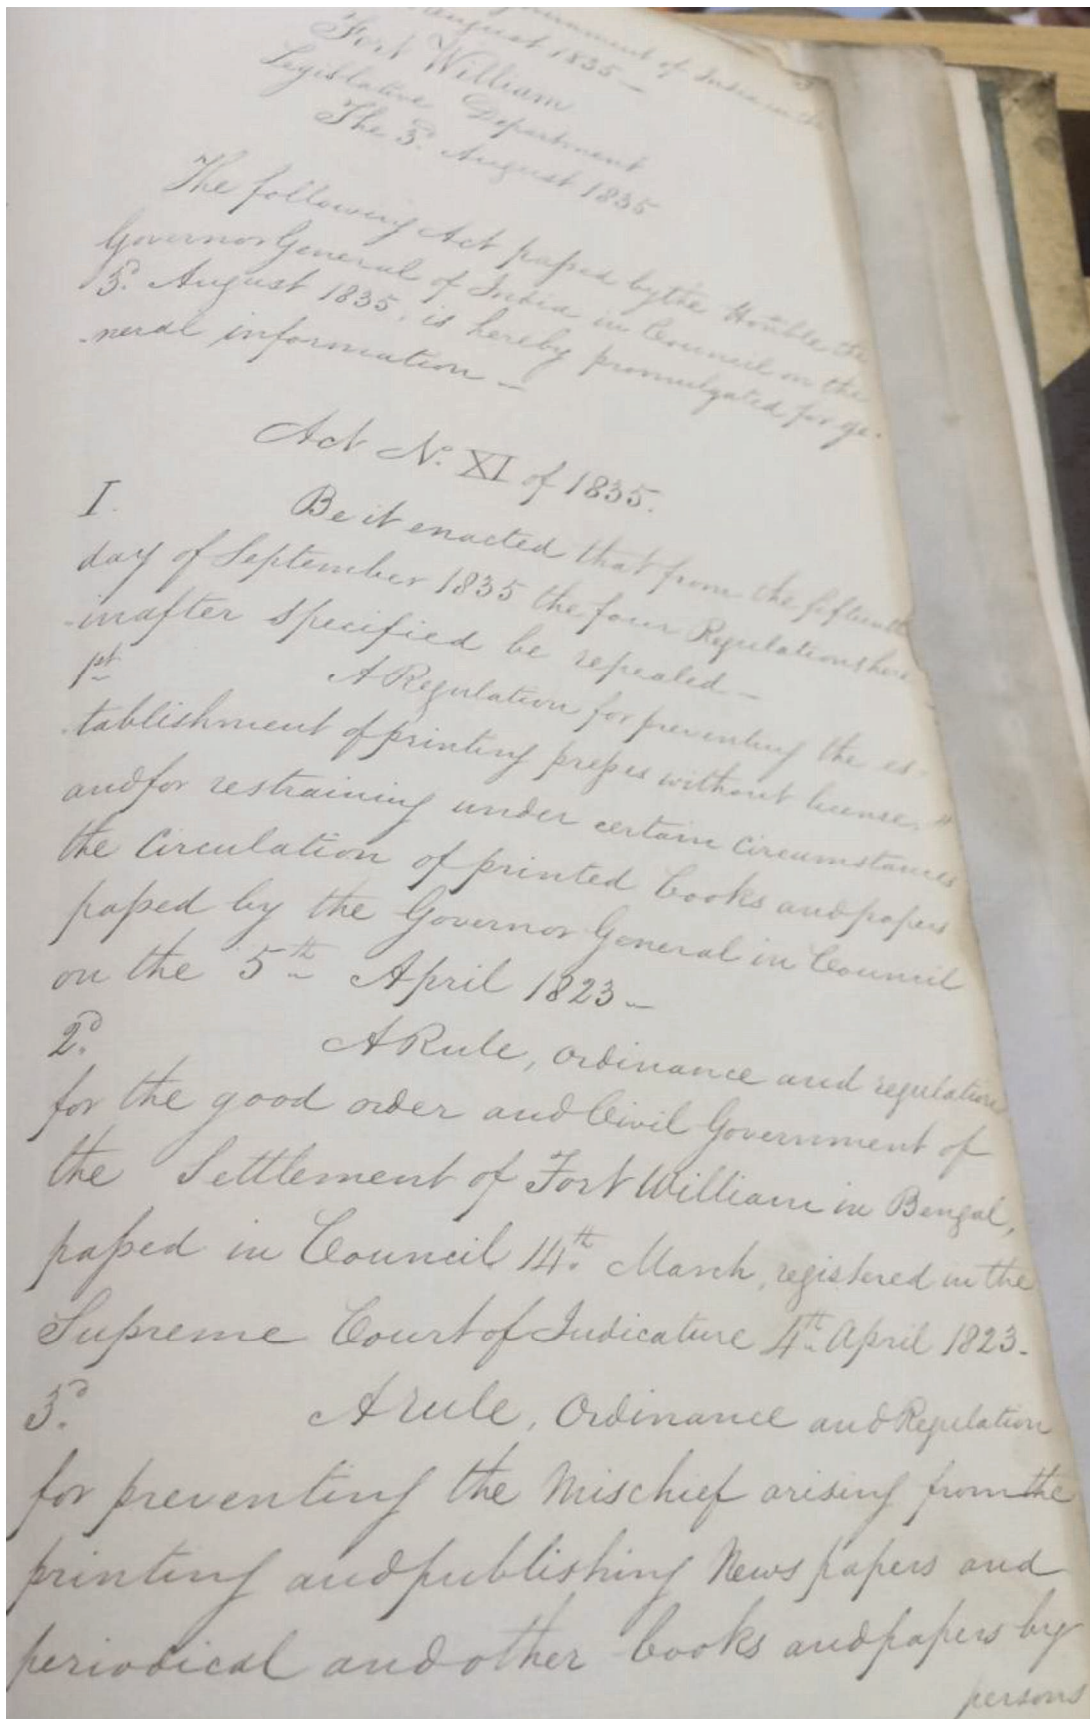 Government of India in the
August 1835 —
Fort William
Legislative Department
The 3d. August 1835
The following Act passed by the Honble the
Governor General of India in Council on the
3d. August 1835, is hereby promulgated for ge-
-neral information —
Act No. XI of 1835.
I. Be it enacted that from the fifteenth
day of September 1835 the four Regulations here
-inafter specified be repealed —
1st A Regulation for preventing the es-
-tablishment of printing presses without license,
and for restraining under certain Circumstances
the Circulation of printed books and papers
passed by the Governor General in Council
on the 5th April 1823 —
2d. A Rule, Ordinance and regulation
for the good order and Civil Government of
the Settlement of Fort William in Bengal,
passed in Council 14th. March, registered in the
Supreme Court of Judicature 4th. April 1823 -
3d. A rule, Ordinance and Regulation
for preventing the Mischief arising from the
printing and publishing News papers and
periodical and other books and papers by
persons